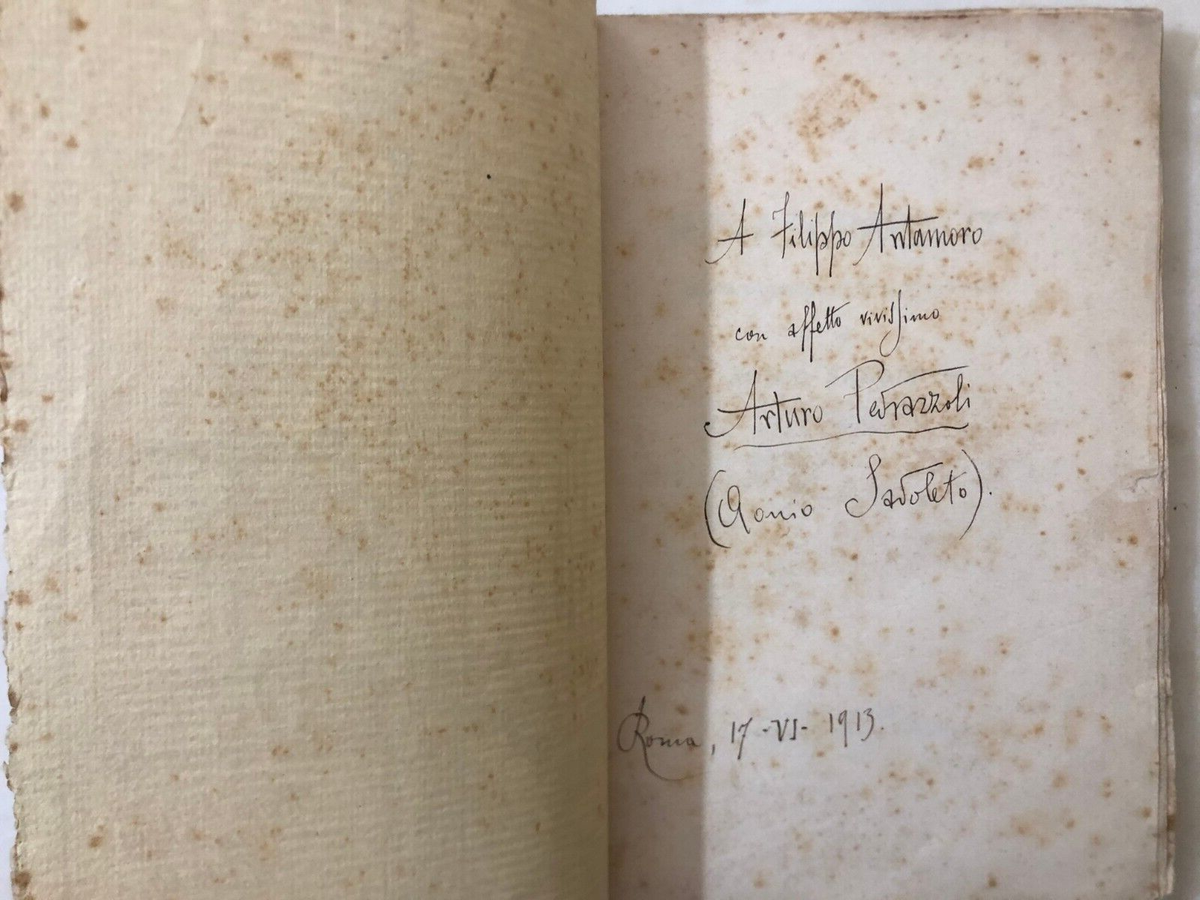 A Filippo Antamoro
con affetto vivissimo
Arturo Pedrazzoli
(Aonio Sadoleto).
Roma, 17-VI-1913.